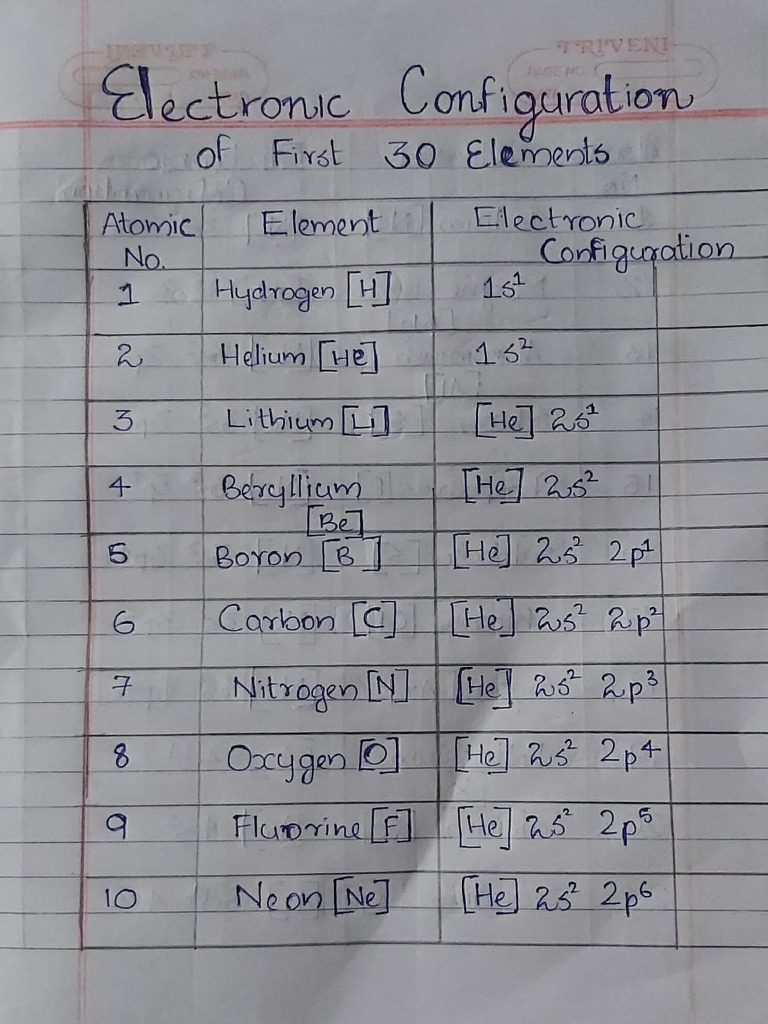 TRIVENI
Electronic Configuration
of First 30 Elements
Atomic No. Element Electronic Configuration
1 Hydrogen [H] 1s¹
2 Helium [He] 1s²
3 Lithium [Li] [He] 2s¹
4 Beryllium [Be] [He] 2s²
5 Boron [B] [He] 2s² 2p¹
6 Carbon [C] [He] 2s² 2p²
7 Nitrogen [N] [He] 2s² 2p³
8 Oxygen [O] [He] 2s² 2p⁴
9 Fluorine [F] [He] 2s² 2p⁵
10 Neon [Ne] [He] 2s² 2p⁶